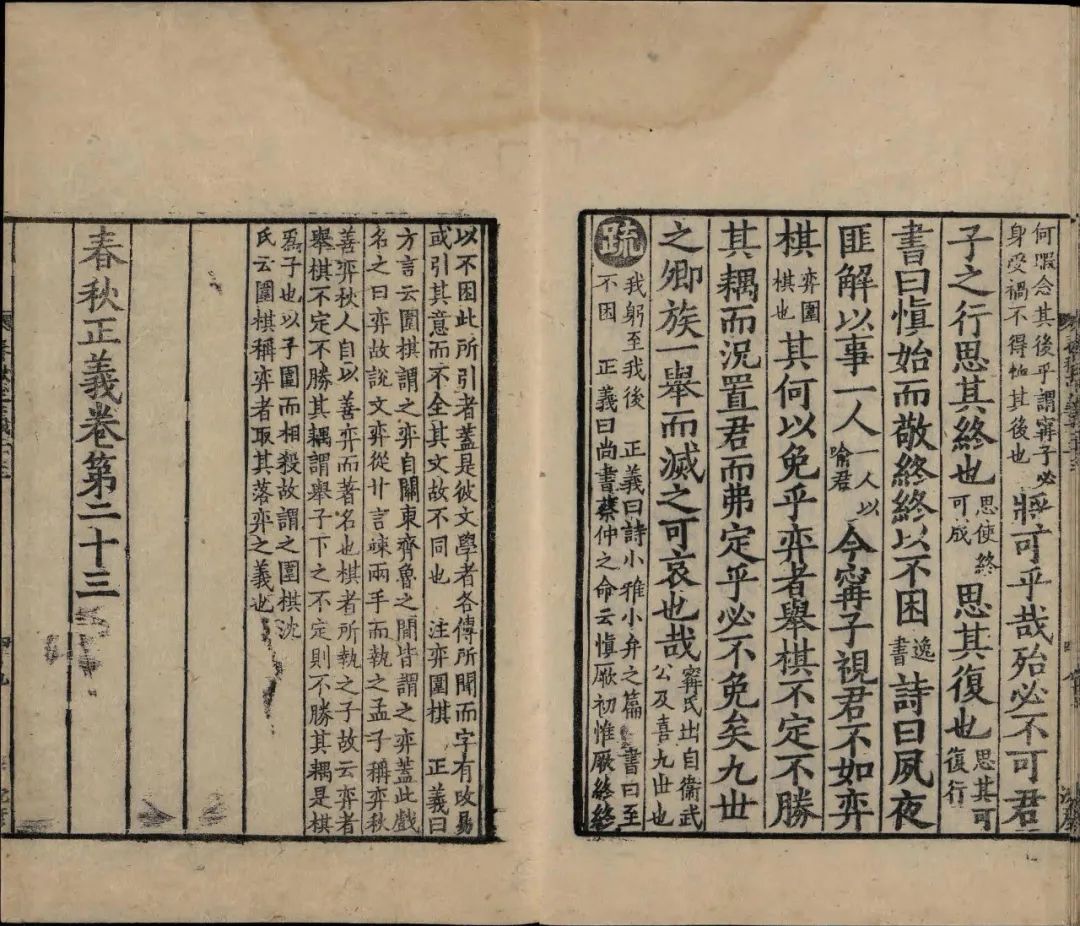 何暇念其後乎謂寗子必
身受禍不得恤其後也
將可乎哉殆必不可君
子之行思其終也
思使終
可成
思其復也
思其可
復行
書曰愼始而敬終終以不困
逸
書
詩曰夙夜
匪解以事一人
一人以
喻君
今寗子視君不如弈
棋
弈圍
棋也
其何以免乎弈者舉棋不定不勝
其耦而況置君而弗定乎必不免矣九世
之卿族一舉而滅之可哀也哉
寗氏出自衞武
公及喜九世也
疏
我躬至我後　正義曰詩小雅小弁之篇　書曰至
不困　正義曰尚書蔡仲之命云愼厥初惟厥終終
以不困此所引者蓋是彼文學者各傳所聞而字有改易
或引其意而不全其文故不同也　注弈圍棋　正義曰
方言云圍棋謂之弈自關東齊魯之間皆謂之弈蓋此戲
名之曰弈故說文弈從廾言竦兩手而執之孟子稱弈秋
善弈秋人自以善弈而著名也棋者所執之子故云弈者
舉棋不定不勝其耦謂舉子下之不定則不勝其耦是棋
爲子也以子圍而相殺故謂之圍棋沈
氏云圍棋稱弈者取其落弈之義也
春秋正義卷第二十三